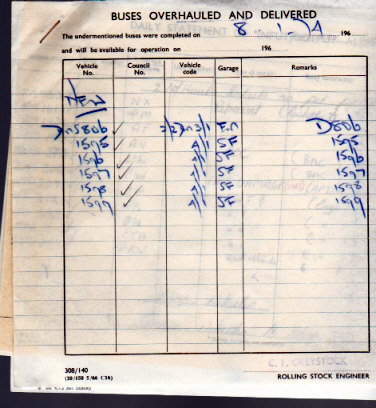 BUSES OVERHAULED AND DELIVERED
The undermentioned buses were completed on 8 . 1 . 74 196
and will be available for operation on 196
Vehicle No. Council No. Vehicle code Garage Remarks
NEW
✓ D586
1595 ✓ SF 1595
1596 ✓ SF 1596
1597 ✓ SF 1597
1598 ✓ SF 1598
1599 ✓ SF 1599
308/140
(20/150 5/66 C38)
C. I. GREYSTOCK
ROLLING STOCK ENGINEER